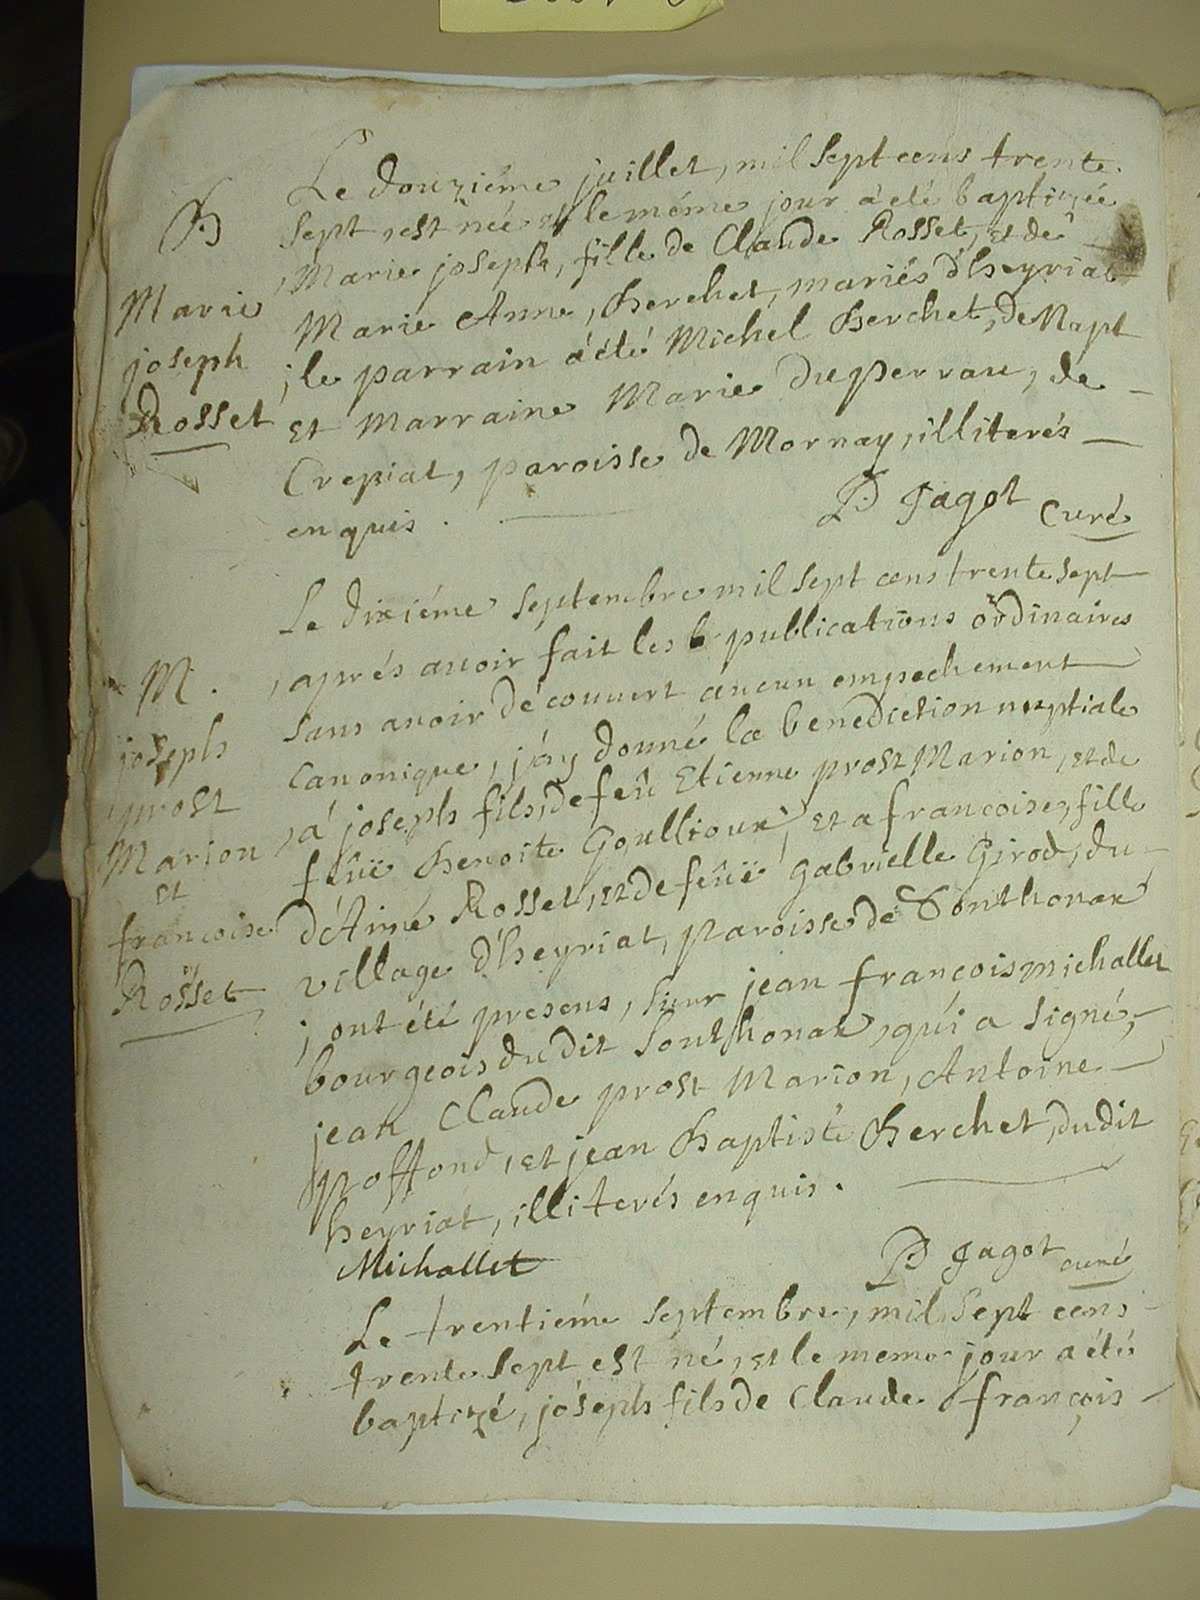 B
Marie
joseph
Rosset
Le douziéme juillet, mil sept cens trente
sept, est née et le méme jour á eté baptizée
, Marie joseph, fille de Claude Rosset, et de
Marie Anne, Berchet, mariés d'heyriat
; le parrain á été Michel Berchet, de Napt
et Marraine Marie Duperrau, de
Crepiat, paroisse de Mornay, illiterés
enquis.
P Jagot Curé
M.
joseph
prost
Marion
et
francoise
Rosset
Le dixiéme septembre mil sept cens trente sept
, aprés avoir fait les publications ordinaires
sans avoir découvert aucun empechement
canonique, j'ay donné la benediction nuptiale
, a' joseph fils, de feû Etienne prost Marion, et de
feûë Benoite Goullioux, et a francoise, fille
d'Aimé Rosset, et de feûë gabrielle Girod, du
village d'heyriat, paroisse de Sonthonax
; ont été presens, sieur jean francois michallet
bourgeois dudit Sonthonax, qui a signé,
jean Claude prost Marion, Antoine
poffond, et jean Baptiste Berchet, dudit
heyriat, illiterés enquis.
Michallet
P Jagot curé
Le trentiéme septembre, mil sept cens
trente sept est né, et le meme jour a été
baptizé, joseph fils de Claude françois